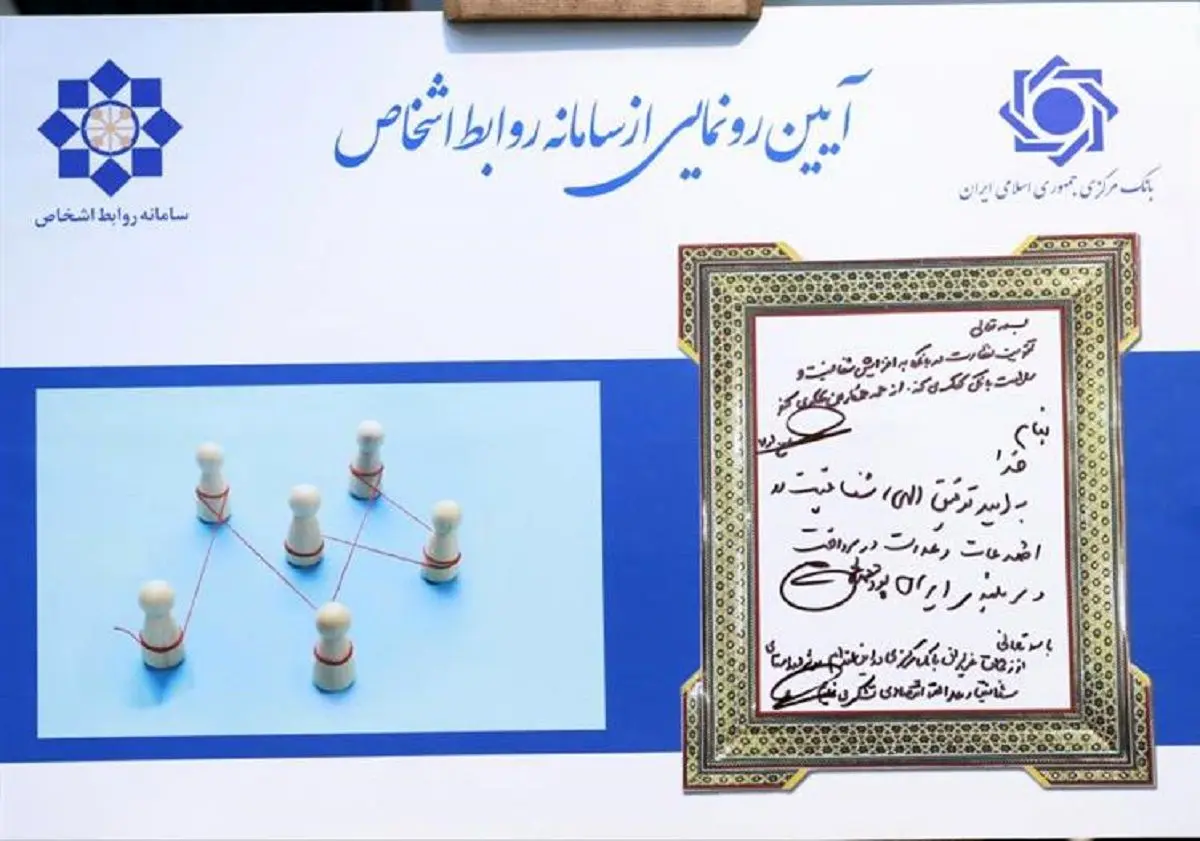 آیین رونمایی از سامانه روابط اشخاص
بانک مرکزی جمهوری اسلامی ایران
سامانه روابط اشخاص
بسمه تعالی
تقویت نظارت در بانکها به افزایش شفافیت و
سلامت بانکی کمک می کند. از همه همکاران تشکر می کنم
بنام
خدا
به امید توفیق الهی، شفافیت در
اطلاعات و
در ایران
باسمه تعالی
از زحمات عزیزان بانک مرکزی در این
شفافیت و عدالت اقتصادی تشکر می نمایم